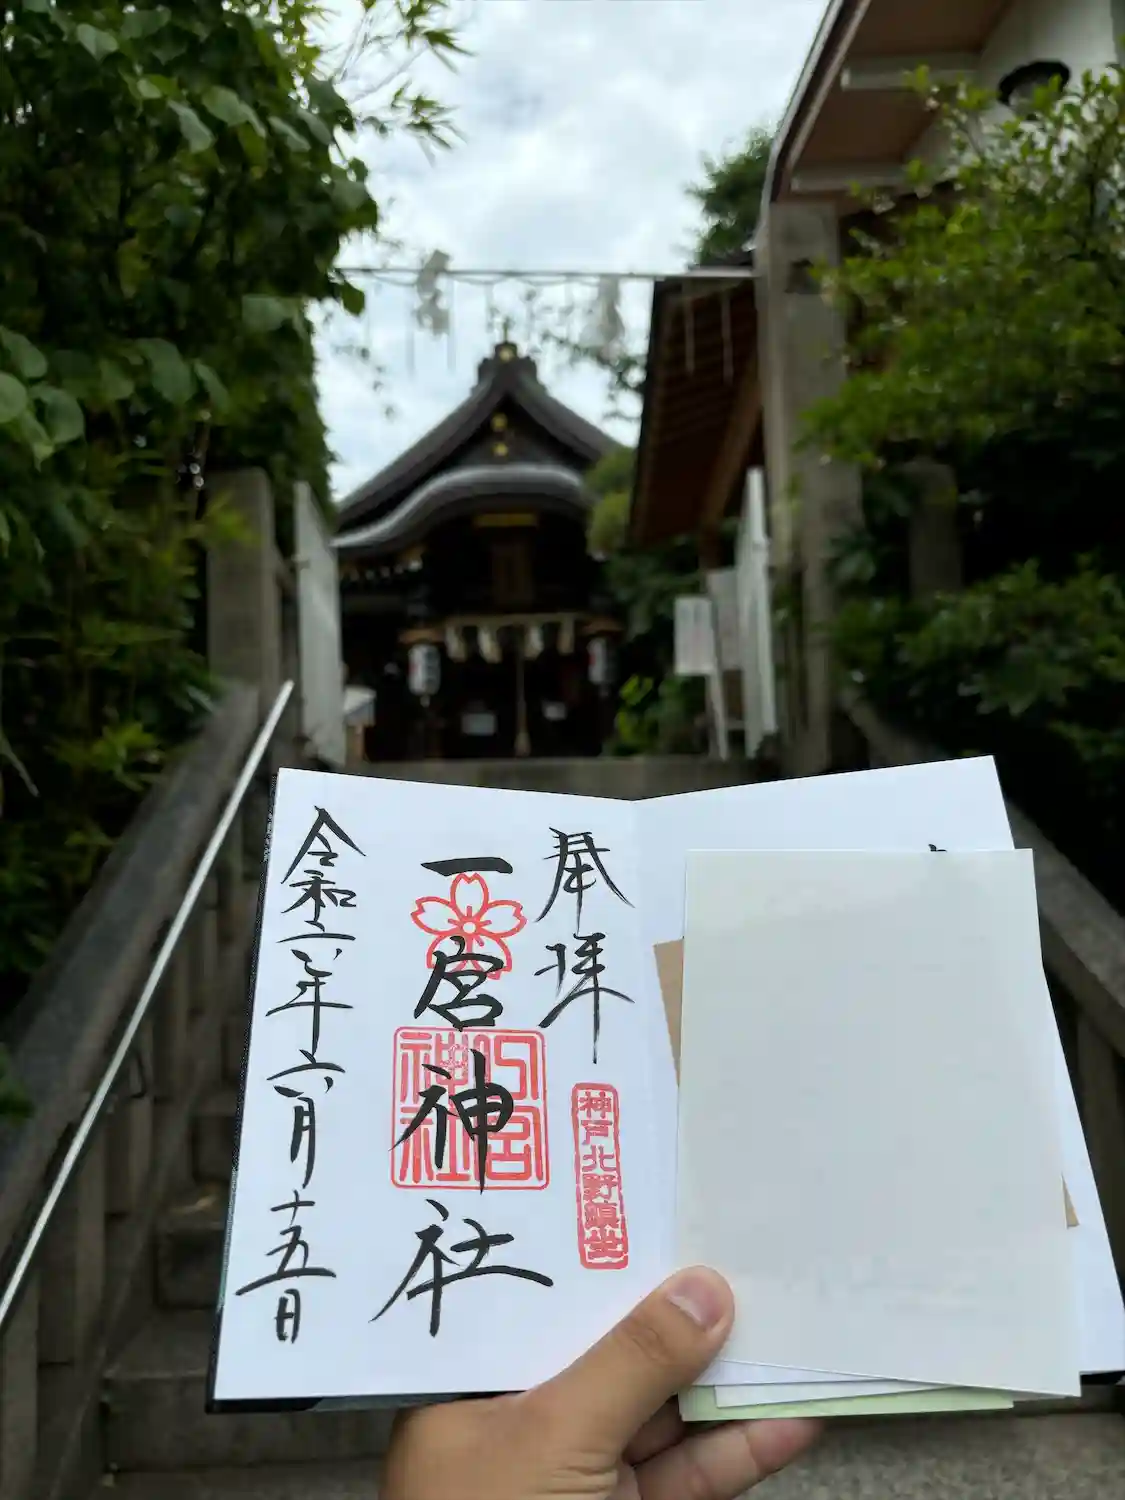 奉拝
神戸北野鎮坐
一宮神社
一宮神社
令和六年六月十五日